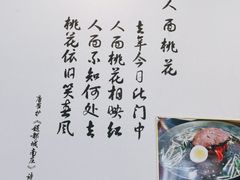 人面桃花
去年今日此门中
人面桃花相映红
人面不知何处去
桃花依旧笑春风
唐崔护《题都城南庄》诗